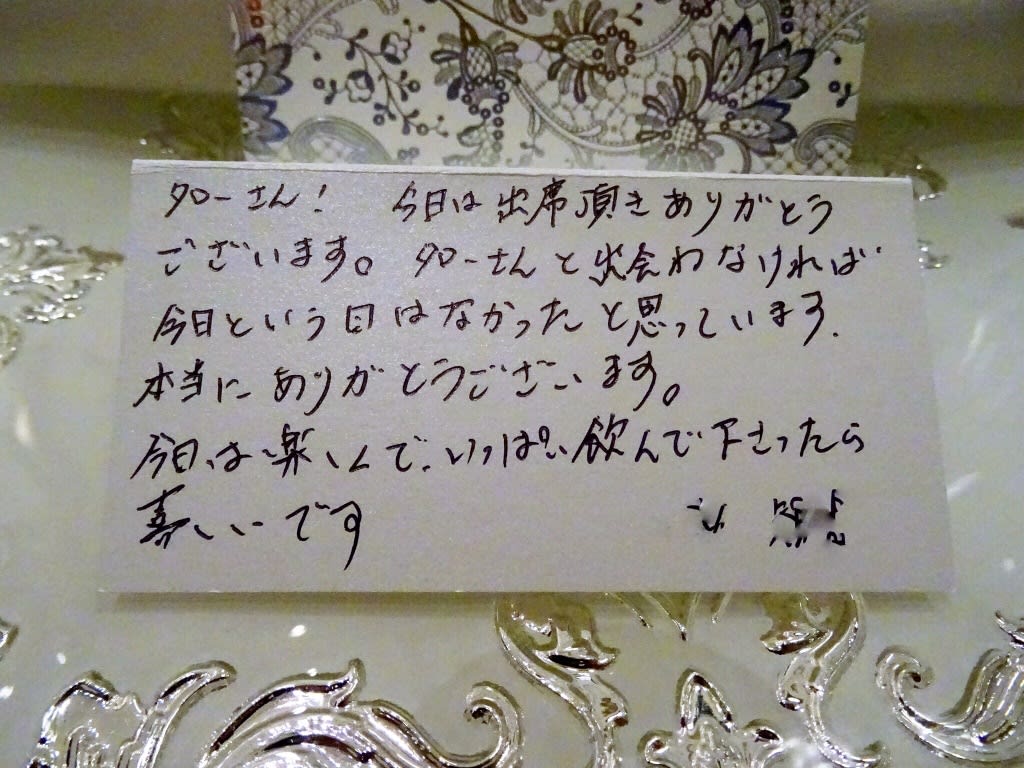 タローさん! 今日は出席頂きありがとう
ございます。タローさんと出会わなければ
今日という日はなかったと思っています.
本当にありがとうございます。
今日は楽しんで、いっぱい飲んで下さったら
喜しいです